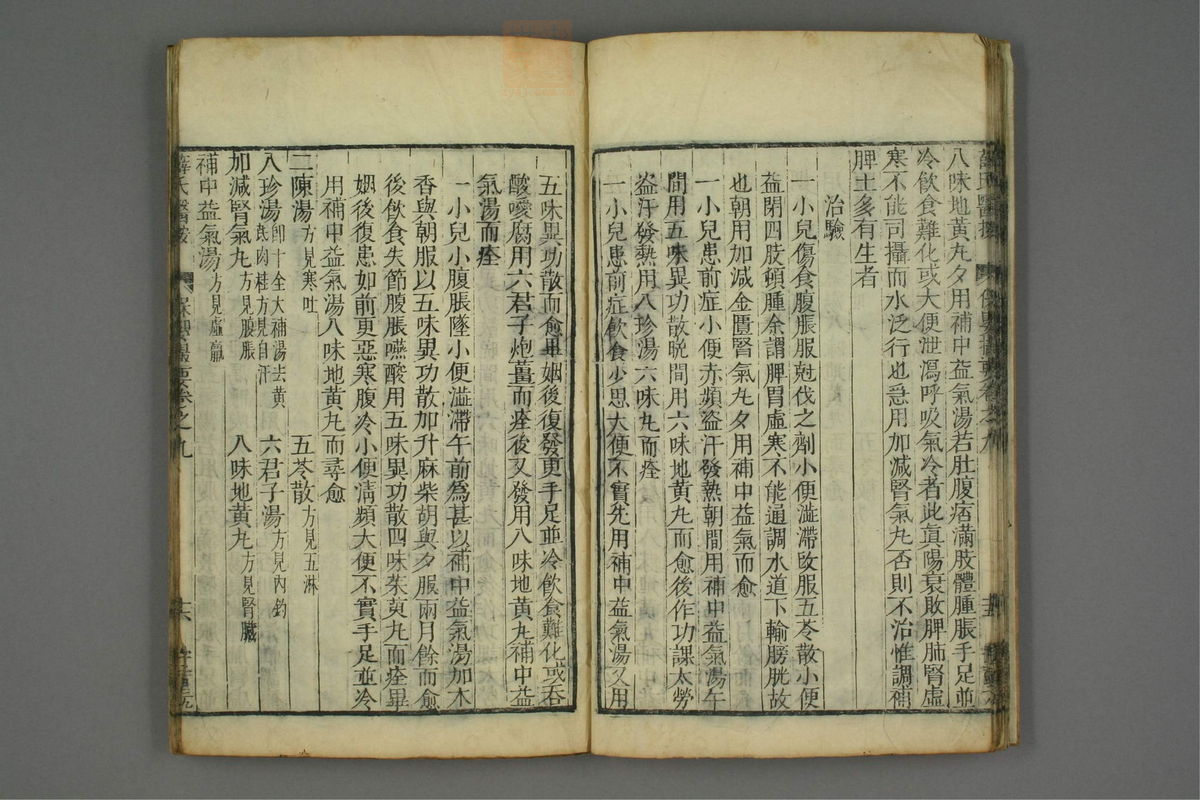 八味地黃丸夕用補中益氣湯若肚腹痞滿肢體腫脹手足並
冷飲食難化或大便泄瀉呼吸氣冷者此眞陽衰敗脾肺腎虛
寒不能司攝而水泛行也急用加減腎氣丸否則不治惟調補
脾土多有生者
治驗
一小兒傷食腹脹服尅伐之劑小便澁滯改服五苓散小便
益閉四肢頓腫余謂脾胃虛寒不能通調水道下輸膀胱故
也朝用加減金匱腎氣丸夕用補中益氣而愈
一小兒患前症小便赤頻盜汗發熱朝間用補中益氣湯午
間用五味異功散晩間用六味地黃丸而愈後作功課太勞
盜汗發熱用八珍湯六味丸而痊
一小兒患前症飲食少思大便不實先用補中益氣湯又用
五味異功散而愈畢姻後復發更手足並冷飲食難化或吞
酸噯腐用六君子炮薑而痊後又發用八味地黃丸補中益
氣湯而痊
一小兒小腹脹墜小便澁滯午前爲甚以補中益氣湯加木
香與朝服以五味異功散加升麻柴胡與夕服兩月餘而愈
後飲食失節腹脹嚥酸用五味異功散四味茱萸丸而痊畢
姻後復患如前更惡寒腹冷小便淸頻大便不實手足並冷
用補中益氣湯八味地黃丸而尋愈
二陳湯方見寒吐 五苓散方見五淋
八珍湯卽十全大補湯去黃芪肉桂方見自汗 六君子湯方見內釣
加減腎氣丸方見腹脹 八味地黃丸方見腎臟
補中益氣湯方見虛羸
薛氏醫按 保嬰撮要卷之九 十六